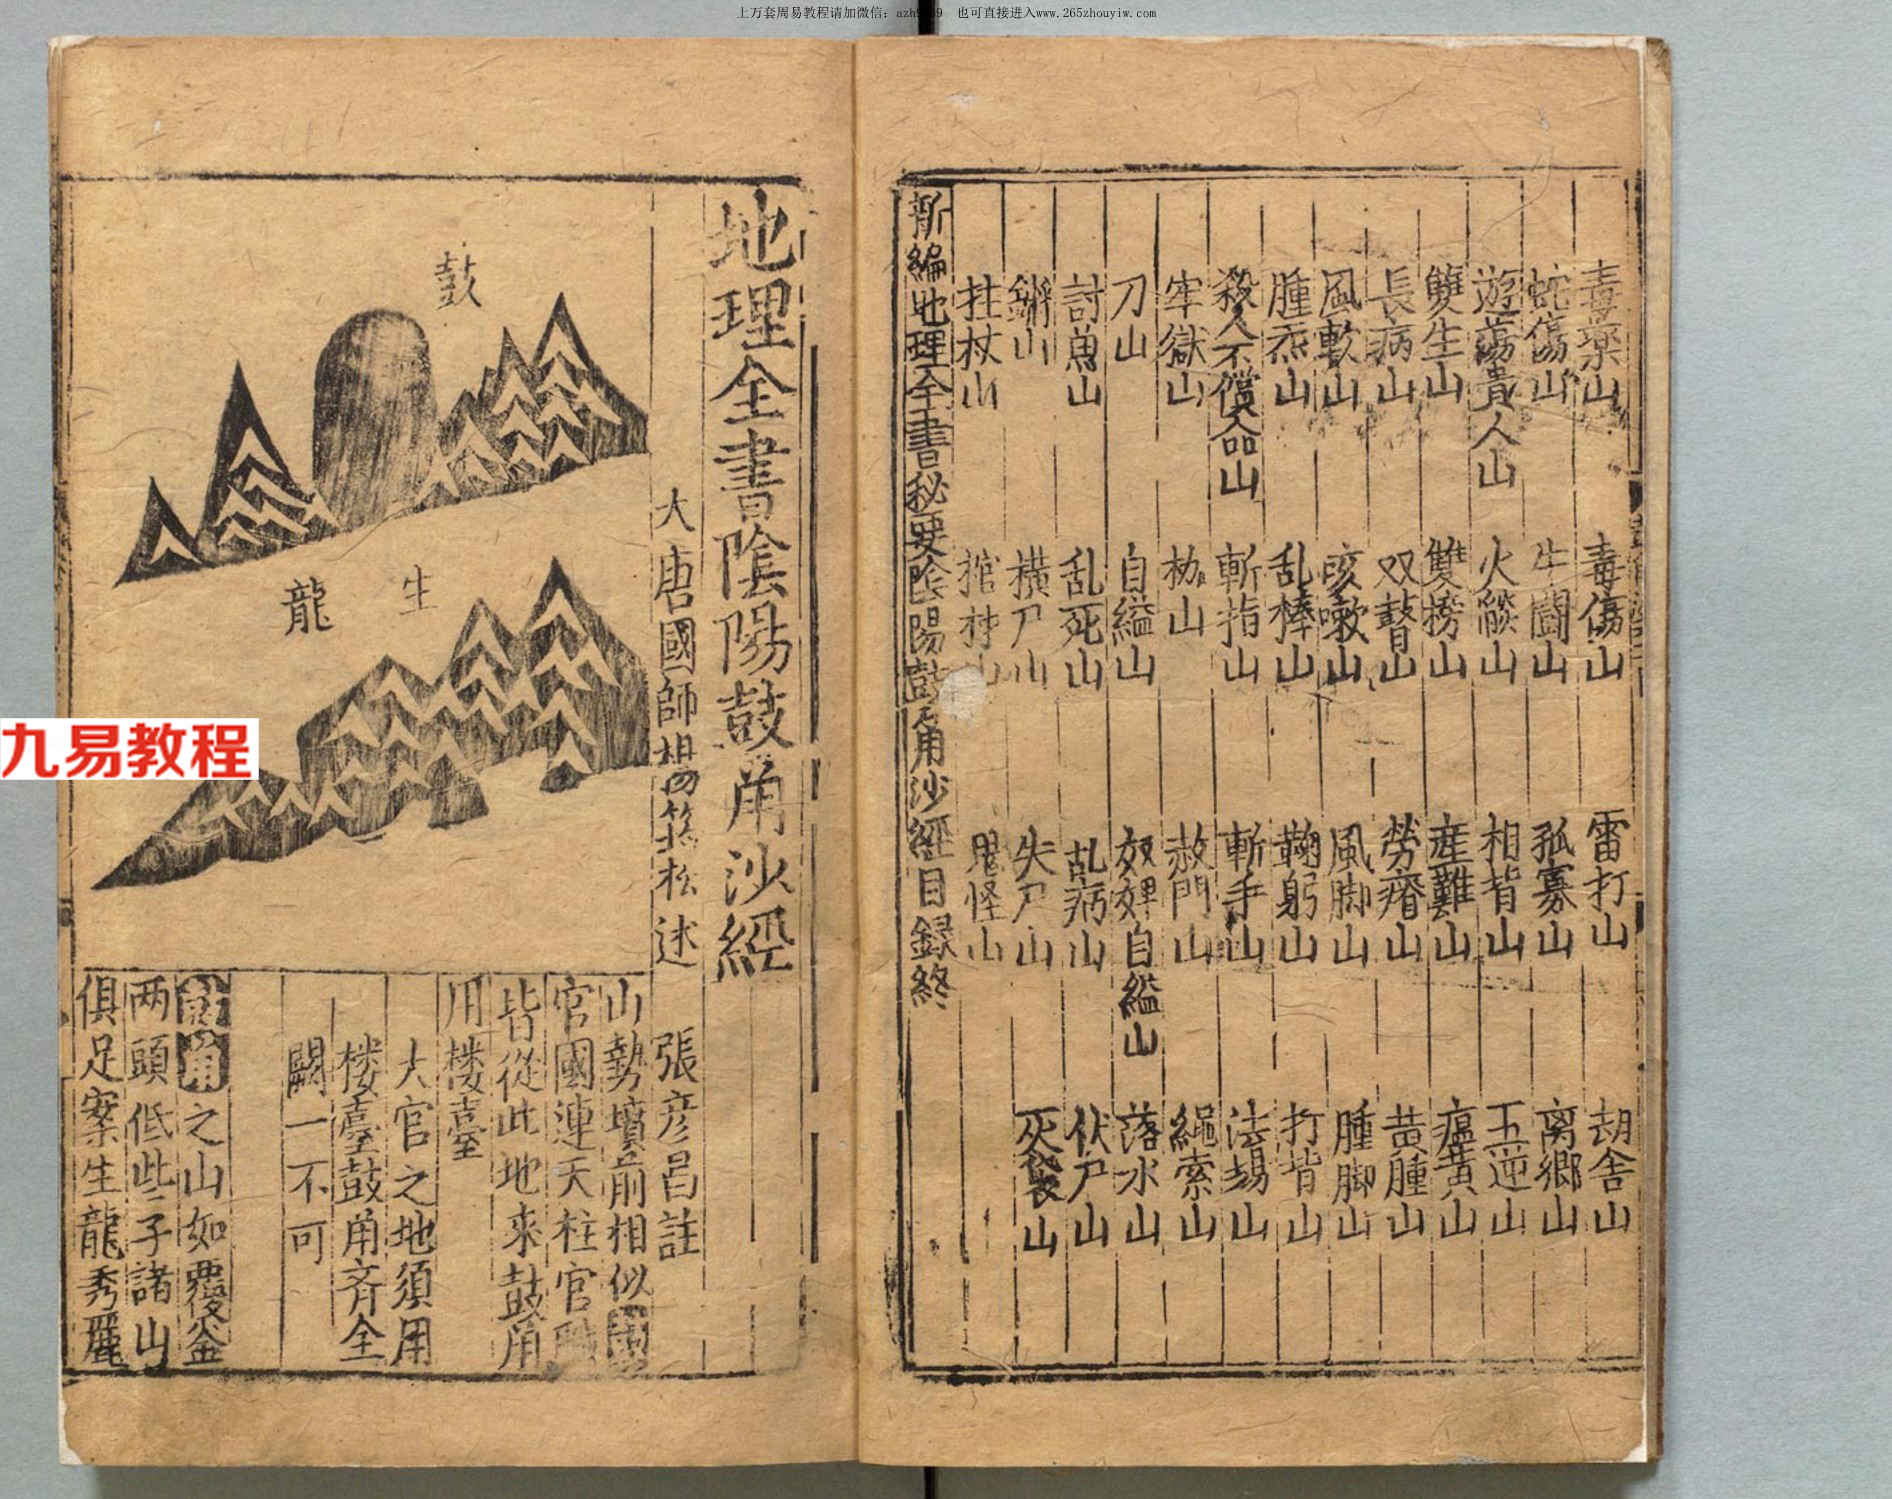 上万套周易教程请加微信: azh9  9 也可直接进入www.265zhouyiw.com
毒藥山 毒傷山 雷打山 胡舍山
蛇傷山 牛鬪山 孤寡山 离鄉山
遊蕩貴人山 火燄山 相背山 五逆山
雙生山 雙搒山 産難山 瘟黄山
長病山 双瞽山 勞瘠山 黄腫山
風軟山 咳嗽山 風脚山 腫脚山
腫炁山 乱棒山 鞠躬山 打背山
殺人不償命山 斬指山 斬手山 法場山
牢獄山 山 赦門山 繩索山
刀山 自縊山 奴婢自縊山 落水山
討魚山 乱死山 乱病山 伏尸山
山 橫尸山 失尸山 灰袋山
拄杖山 棺材山 鬼怪山
新編地理全書秘要陰陽鼓角沙經目録終
地理全書陰陽鼓角沙經
大唐國師楊筠松述
張彦昌註
鼓
生
龍
山勢墳前相似
官國連天柱官職
皆從此地来鼓角
用楼臺
大官之地須用
楼臺鼓角齐全
闕一不可
之山如覆釜
两頭低些子諸山
俱足案生龍秀麗
九易教程